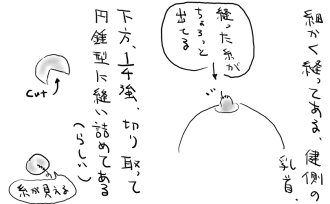 細かく縫ってある、健側の
乳首.
縫った糸が
ちょろっと
出てる
下方、1/4強、切り取って
円錐型に縫い詰めてある
(らしい)
cut
糸が見える